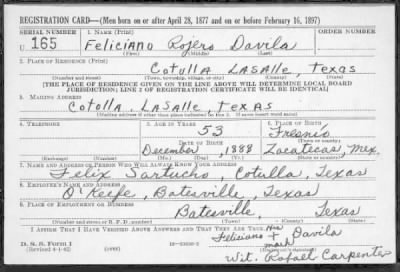 REGISTRATION CARD—(Men born on or after April 28, 1877 and on or before February 16, 1897)
SERIAL NUMBER 1. NAME (Print) ORDER NUMBER
U 165 Feliciano Rojero Davila
(First) (Middle) (Last)
2. PLACE OF RESIDENCE (Print)
Cotulla LaSalle, Texas
(Number and street) (Town, township, village, or city) (County) (State)
[THE PLACE OF RESIDENCE GIVEN ON THE LINE ABOVE WILL DETERMINE LOCAL BOARD
JURISDICTION; LINE 2 OF REGISTRATION CERTIFICATE WILL BE IDENTICAL]
3. MAILING ADDRESS
Cotolla, LaSalle, Texas
[Mailing address if other than place indicated on line 2. If same insert word same]
4. TELEPHONE 5. AGE IN YEARS 6. PLACE OF BIRTH
53 Fresnio
DATE OF BIRTH
December, 1888 Zacatecas, Mex.
(Exchange) (Number) (Mo.) (Day) (Yr.) (State or country)
7. NAME AND ADDRESS OF PERSON WHO WILL ALWAYS KNOW YOUR ADDRESS
Felix Sartucho, Cotulla, Texas
8. EMPLOYER'S NAME AND ADDRESS
O'Keefe, Batesville, Texas
9. PLACE OF EMPLOYMENT OR BUSINESS
Batesville, Texas
(Number and street or R. F. D. number) (Town) (County) (State)
I AFFIRM THAT I HAVE VERIFIED ABOVE ANSWERS AND THAT THEY ARE TRUE.
his
Feliciano + Davila
mark
D. S. S. Form 1
(Revised 4-1-42) (over)
Wit. Rafael Carpenter